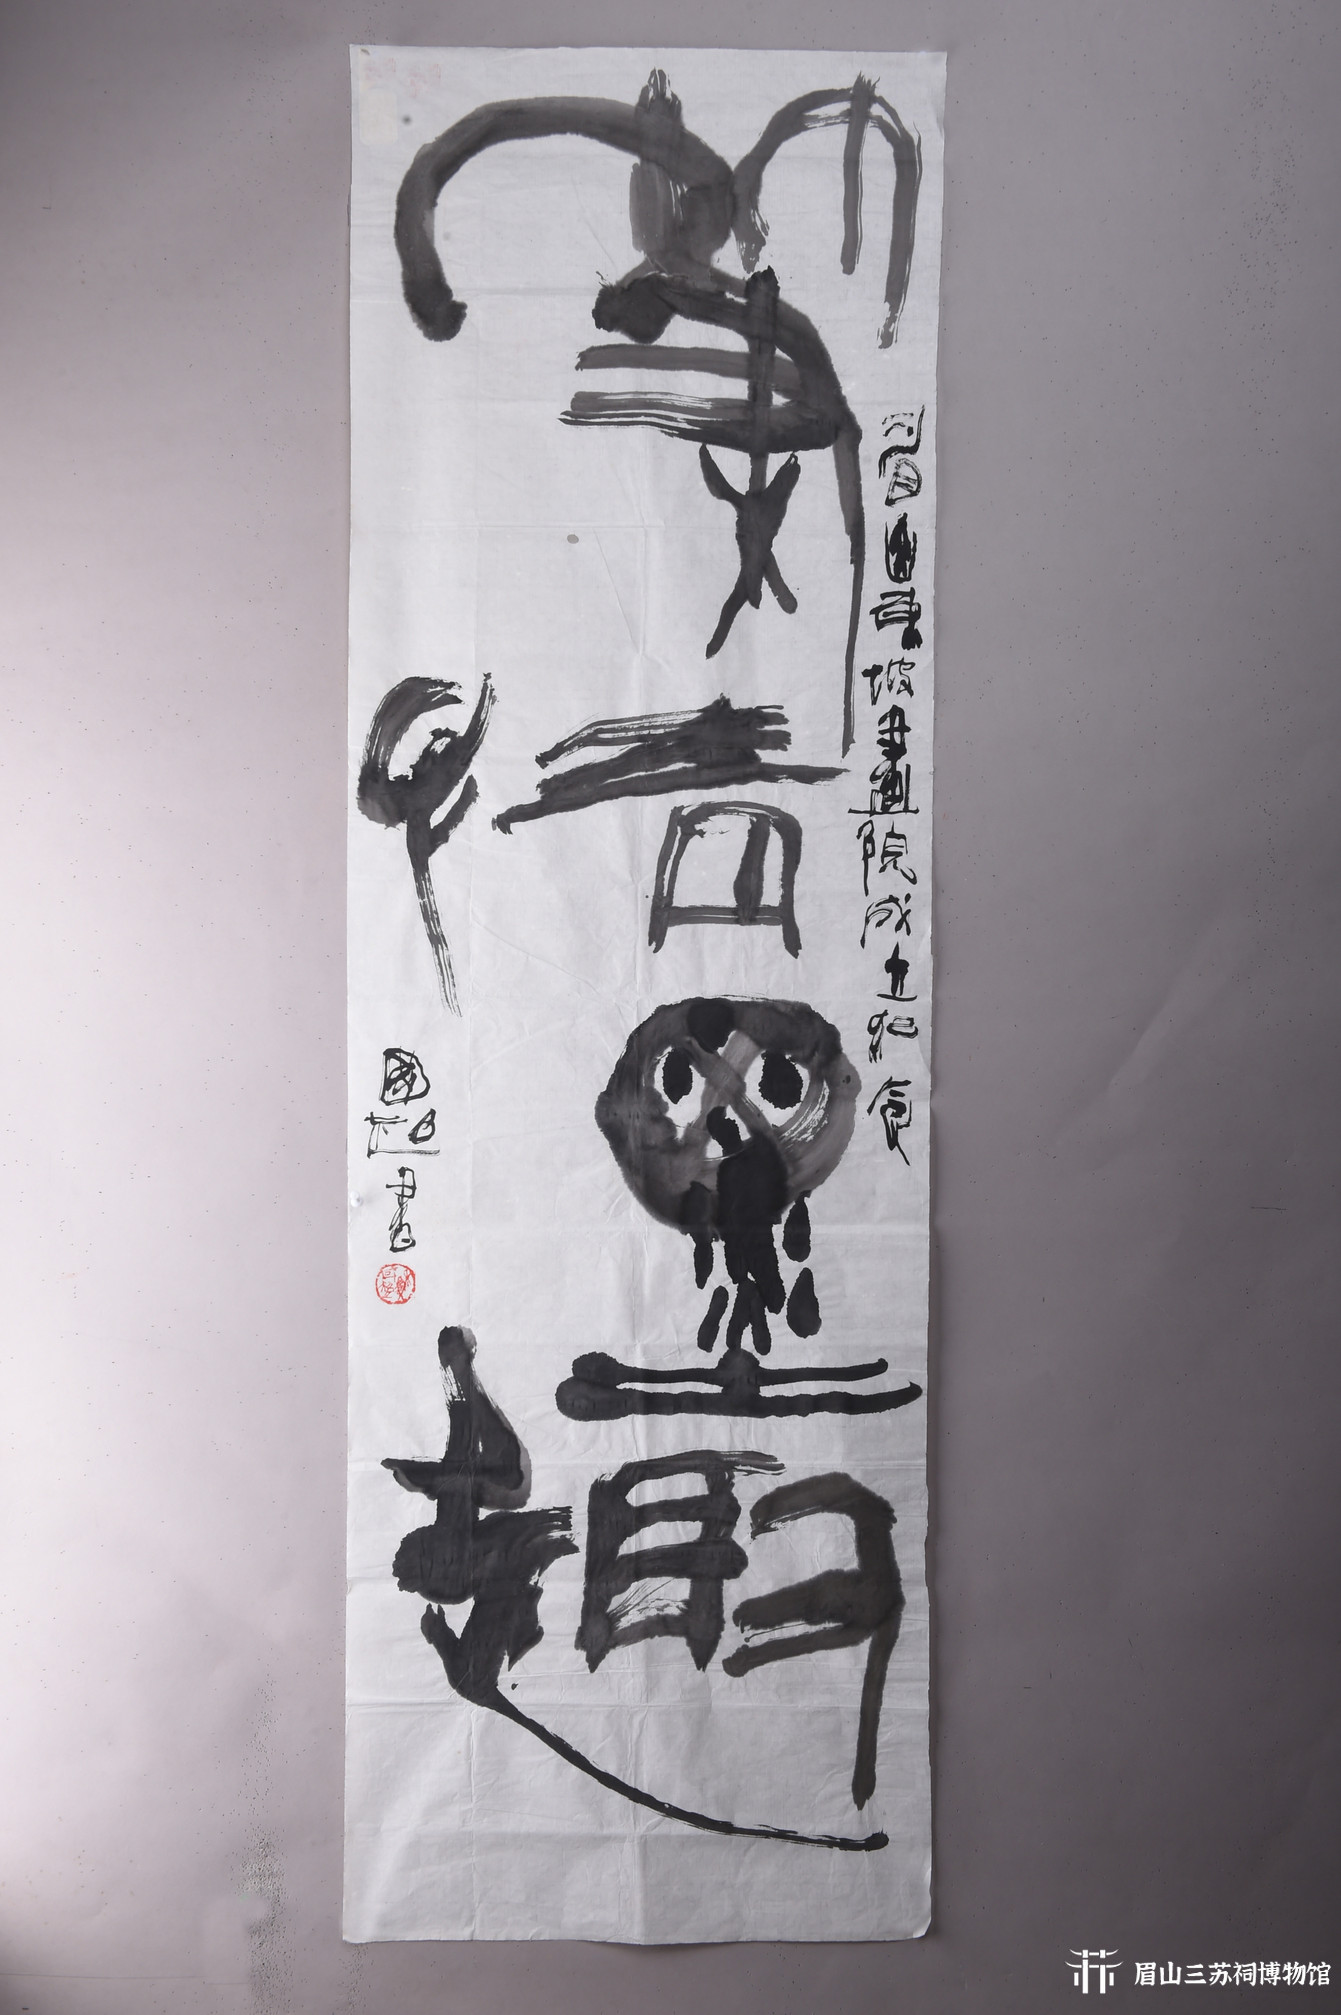 筆情墨趣
眉山東坡畫院成立紀念
國超書
眉山三苏祠博物馆